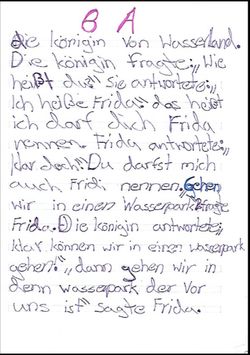 B A
Die königin von Wasserland.
Die königin fragte: „Wie
heißt du"? Sie antwortete:„
Ich heiße Frida." das heißt
ich darf dich Frida
nennen. Frida antwortete:„
klar doch". Du darfst mich
auch Fridi nennen. Gehen
wir in einen Wasserpark? fragte
Frida. Die königin antwortete:
klar können wir in einen wasserpark
gehen". „dann gehen wir in
denn wasserpark der Vor
uns ist" sagte Frida.